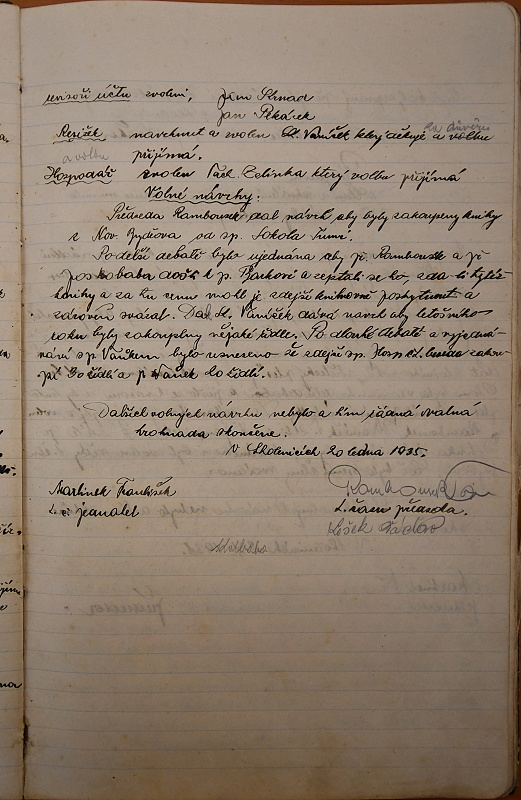 revisoři účtů zvoleni, Jan Strnad
Jan Pekárek
Režisér navrhnut a zvolen St. Vaníček který děkuje a volbu
za důvěru
a volbu
přijímá.
Hospodář zvolen Václ. Zelinka který volbu přijímá
Volné návrhy.
Předseda Rambousek dal návrh aby byly zakoupeny knihy
z Nov. Bydžova od sp. Sokola
Po delší debatě bylo ujednáno aby p. Rambousek a p.
došli k p. a zeptali se ho, zda-li by
knihy a za tu cenu mohl je zdejší knihovně poskytnout a
zároveň svázat. Dál St. Vaníček dává návrh aby letošního
roku byly zakoupeny nějaké židle. Po dlouhé debatě a vyjedná-
vání sp. bylo usneseno že zdejší sp. zakou-
pí 30 židlí a p. Vaněk 20 židlí.
Dalších volných návrhů nebylo a tím řádná valná
hromada skončena.
V Skochovicích 20 ledna 1935.
Martínek František
t. č. jednatel
Rambousek
t. časem předseda.